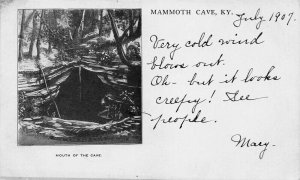 MAMMOTH CAVE, KY.
July 1907.
Very cold wind
blows out.
Oh - but it looks
creepy! See
people.
Mary.
MOUTH OF THE CAVE.